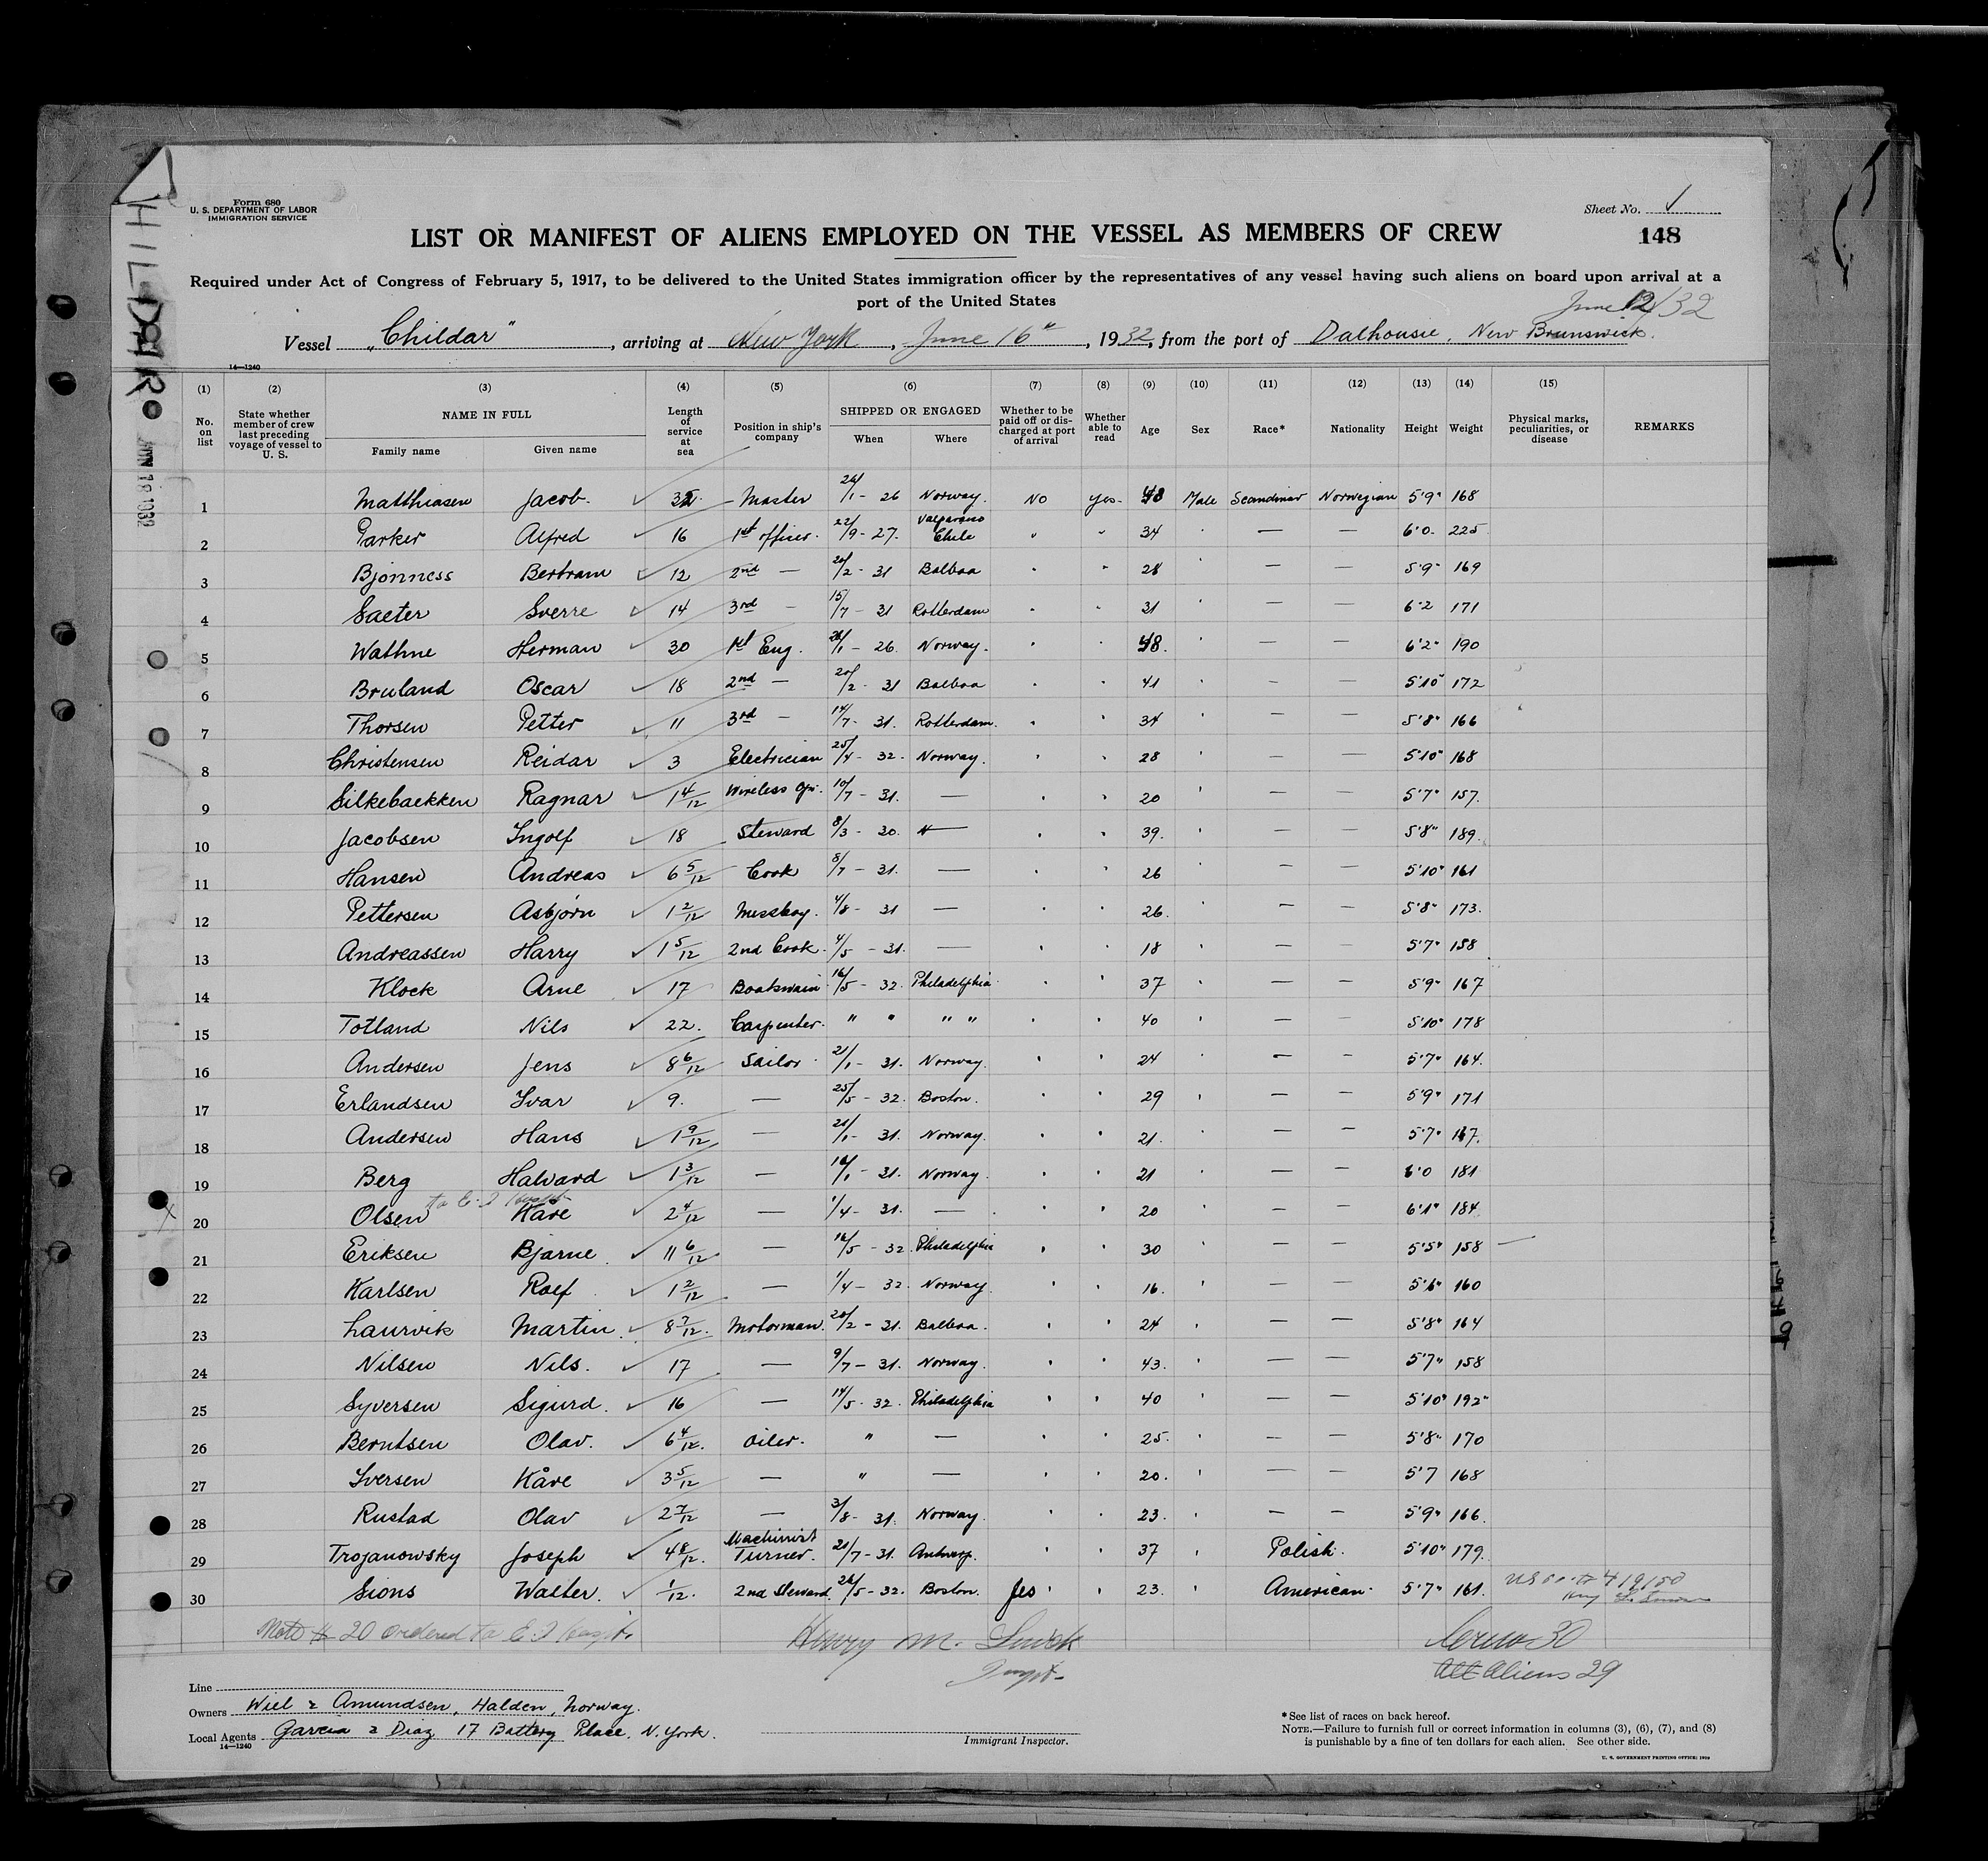 Form 680
U. S. DEPARTMENT OF LABOR
IMMIGRATION SERVICE
Sheet No. 1
148
LIST OR MANIFEST OF ALIENS EMPLOYED ON THE VESSEL AS MEMBERS OF CREW
Required under Act of Congress of February 5, 1917, to be delivered to the United States immigration officer by the representatives of any vessel having such aliens on board upon arrival at a
port of the United States
June 12/32
Vessel "Childar", arriving at New York, June 16th, 1932, from the port of Dalhousie, New Brunswick.
14—1240
(1) (2) (3) (4) (5) (6) (7) (8) (9) (10) (11) (12) (13) (14) (15)
No. on list
State whether member of crew last preceding voyage of vessel to U. S.
NAME IN FULL
Family name Given name
Length of service at sea
Position in ship's company
SHIPPED OR ENGAGED
When Where
Whether to be paid off or discharged at port of arrival
Whether able to read
Age Sex Race* Nationality Height Weight
Physical marks, peculiarities, or disease
REMARKS
1 Matthiasen Jacob. 32 Master 26/1 - 26 Norway. No yes- 48 Male Scandinav Norwegian 5'9" 168
2 Parker Alfred 16 1st officer. 22/9 - 27. Valparaiso Chile " " 34 " — — 6'0- 225
3 Bjönness Bertram 12 2nd — 20/2 - 31 Balboa " " 28 " — — 5'9" 169
4 Saeter Sverre 14 3rd — 15/7 - 31 Rotterdam " " 31 " — — 6'2 171
5 Wathne Herman 30 1st Eng. 26/1 - 26. Norway. " " 48. " — — 6'2" 190
6 Bruland Oscar 18 2nd — 20/2 - 31 Balboa " " 41 " — — 5'10" 172
7 Thorsen Petter 11 3rd — 14/7 - 31. Rotterdam. " " 34 " — — 5'8" 166
8 Christensen Reidar 3 Electrician 25/4 - 32. Norway. " " 28 " — — 5'10" 168
9 Silkebaekken Ragnar 1 4/12 Wireless Op. 10/7 - 31. — " " 20 " — — 5'7" 157.
10 Jacobsen Ingolf 18 Steward 8/3 - 30. — " " 39. " — — 5'8" 189.
11 Hansen Andreas 6 5/12 Cook 8/7 - 31. — " " 26 " — — 5'10" 161
12 Pettersen Asbjørn 1 2/12 Messboy. 4/8 - 31 — " " 26. " — — 5'8" 173.
13 Andreassen Harry 1 5/12 2nd Cook. 4/5 - 31. — " " 18 " — — 5'7" 158
14 Klock Arne 17 Boatswain 16/5 - 32. Philadelphia. " " 37 " — — 5'9" 167
15 Totland Nils 22. Carpenter. " " " " " " 40 " — — 5'10" 178
16 Andersen Jens 8 6/12 Sailor 21/1 - 31. Norway. " " 24 " — — 5'7" 164.
17 Erlandsen Ivar 9. — 25/5 - 32. Boston. " " 29 " — — 5'9" 171
18 Andersen Hans 1 9/12 — 21/1 - 31. Norway. " " 21. " — — 5'7" 167.
19 Berg Halvard 1 3/12 — 16/1 - 31. Norway. " " 21 " — — 6'0 181
to E. I
20 Olsen Kåre 2 4/12 — 1/4 - 31. — " " 20 " — — 6'1" 184
21 Eriksen Bjarne. 11 6/12 — 16/5 - 32. Philadelphia " " 30 " — — 5'5" 158 —
22 Karlsen Rolf 1 2/12 — 1/4 - 32. Norway. " " 16. " — — 5'6" 160
23 Laurvik Martin. 8 7/12. Motorman. 20/2 - 31. Balboa. " " 24 " — — 5'8" 164
24 Nilsen Nils. 17 — 9/7 - 31. Norway. " " 43. " — — 5'7" 158
25 Syversen Sigurd. 16 — 14/5 - 32. Philadelphia " " 40 " — — 5'10" 192"
26 Berntsen Olav. 6 4/12. Oiler. " — " " 25. " — — 5'8" 170
27 Iversen Kåre 3 5/12 — " — " " 20. " — — 5'7 168
28 Rustad Olav 2 7/12 — 3/8 - 31. Norway. " " 23. " — — 5'9" 166.
29 Trojanowsky Joseph 4 8/12. Machinist Turner. 21/7 - 31. Antwerp. " " 37 " Polish. 5'10" 179.
30 Sions Walter. 1/12. 2nd Steward 26/5 - 32. Boston. yes " " 23. " American. 5'7" 161.
Note # 20 ordered to E. I Hospt.
Henry M.
Inspt-
Crew 30
Aliens 29
Line
Owners Wiel & Amundsen, Halden, Norway.
Local Agents Garcia & Diaz 17 Battery Place. N. York.
14—1240
Immigrant Inspector.
*See list of races on back hereof.
NOTE.—Failure to furnish full or correct information in columns (3), (6), (7), and (8)
is punishable by a fine of ten dollars for each alien. See other side.
U. S. GOVERNMENT PRINTING OFFICE: 1929
CHILDAR
JUN 18 1932